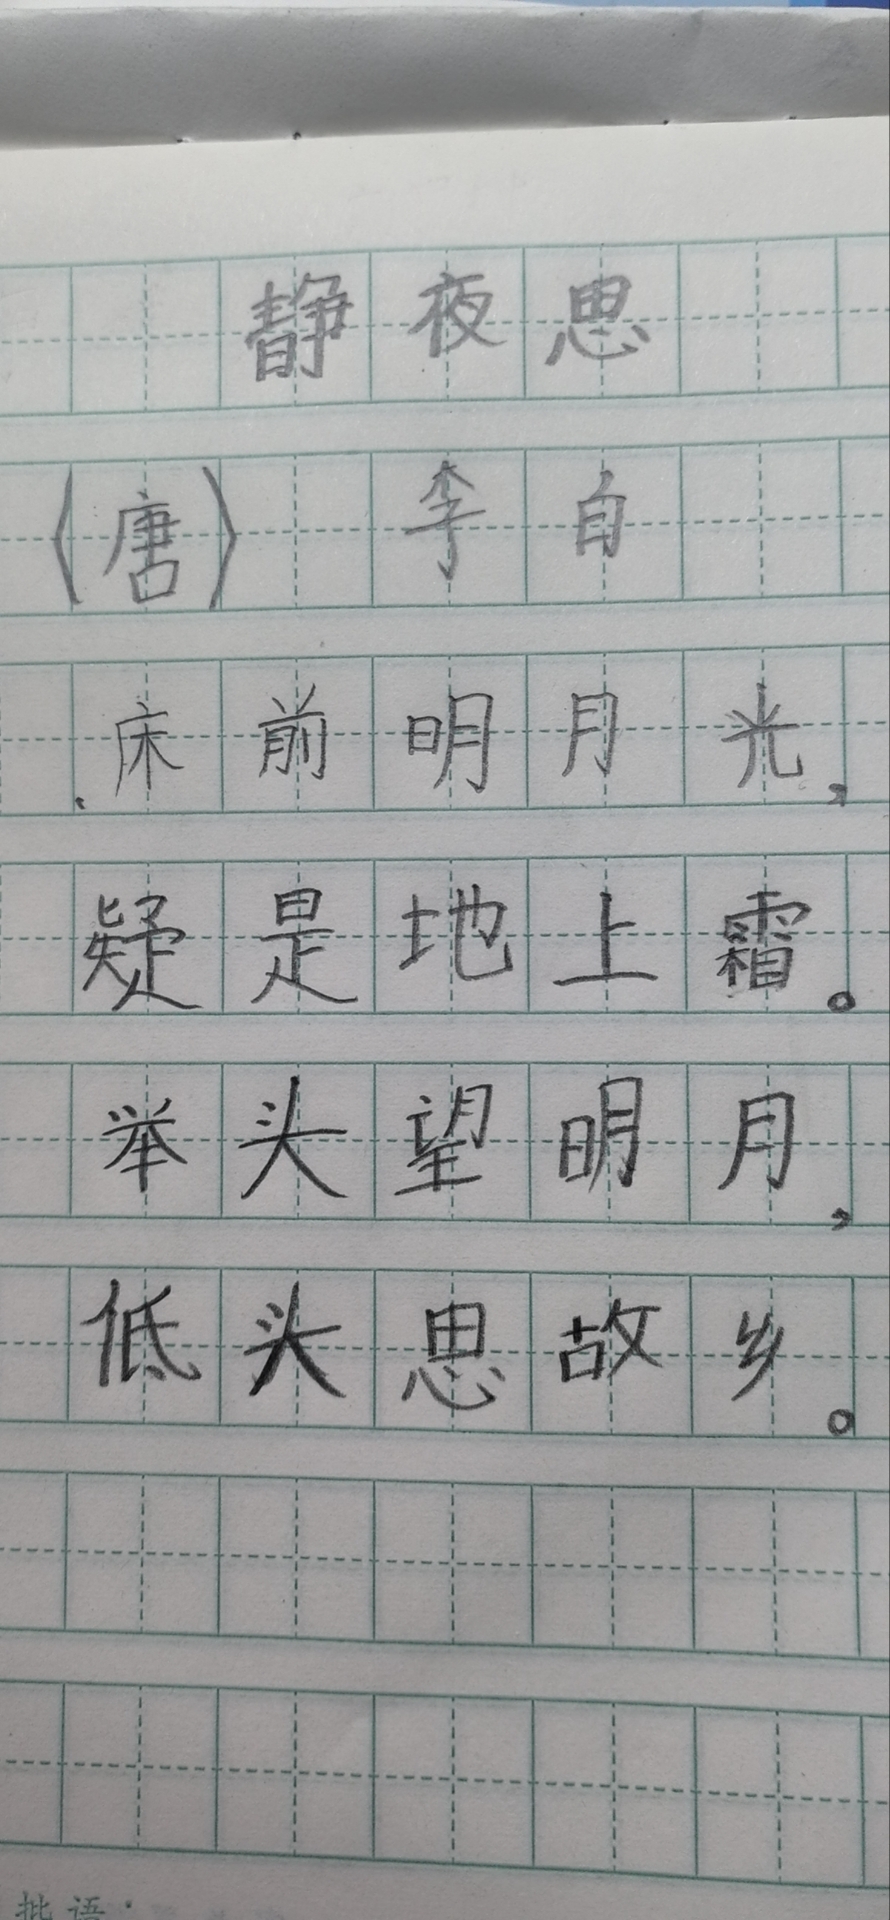 静夜思
〈唐〉 李白
床前明月光，
疑是地上霜。
举头望明月，
低头思故乡。
批语：